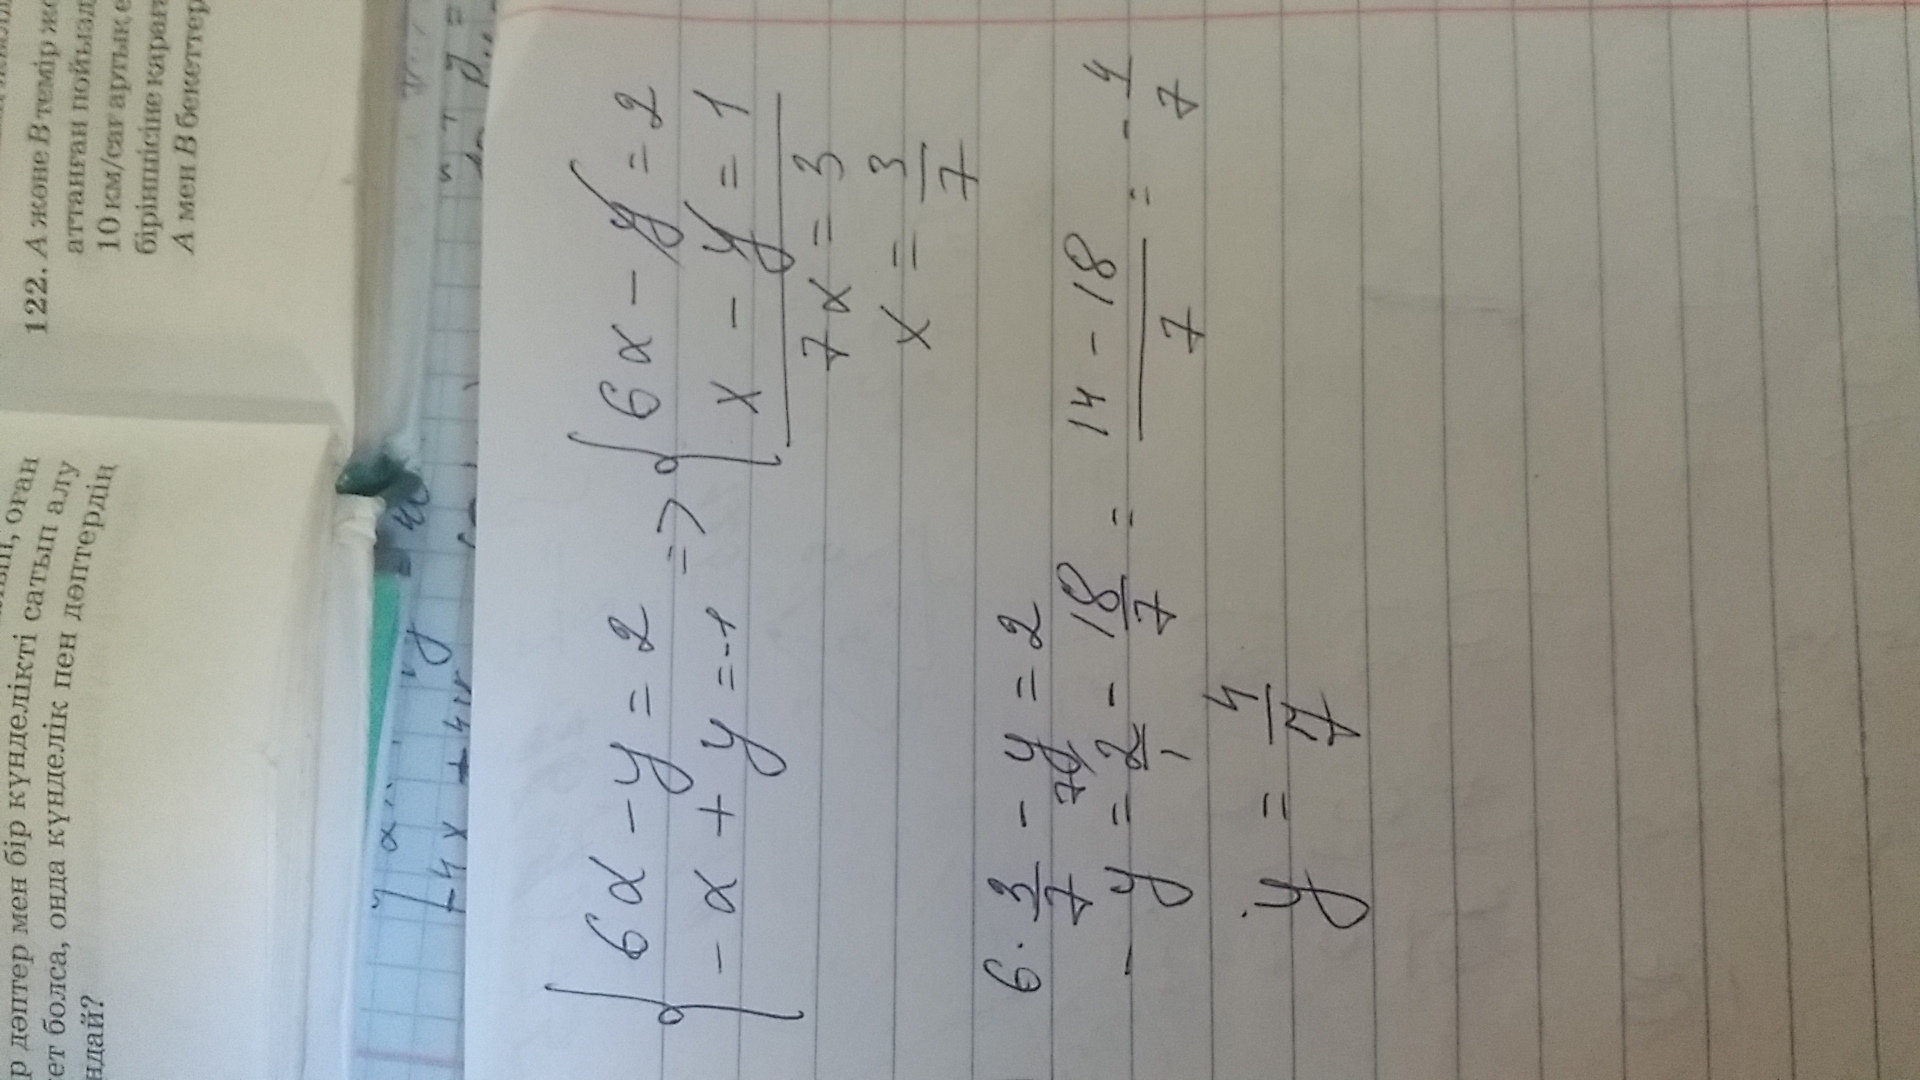 р дәптер мен бір күнделікті сатып алу
ет болса, онда күнделік пен дәптердің
ндай?
122. А және В темір жо
аттанған пойызд
10 км/сағ артық е
біріншісіне қараға
А мен В бекеттер
{ 6x - y = 2
- x + y = -1
=> { 6x - y = 2
x - y = 1
7x = 3
x = 3/7
6 · 3/7 - y = 2
- y = 2/1 - 18/7 = 14 - 18/7 = - 4/7
y = 4/7